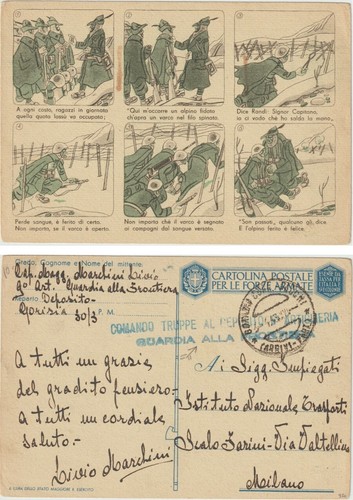 A ogni costo, ragazzi in giornata
quella quota lassù va occupata;
"Qui m'occorre un alpino fidato
ch'apra un varco nel filo spinato.
Dice Rondi: Signor Capitano,
io ci vado che ho salda la mano,
Perde sangue, è ferito di certo.
Non importa, il varco è aperto.
Non importa che il varco è segnato
ai compagni dal sangue versato.
"Son passati, qualcuno gli dice,
E l'alpino ferito è felice.
Grado, Cognome e Nome del mittente
Cap. Magg. Marchini Livio
9° Art. Guardia alla Frontiera
Reparto Deposito
30/3 P. M.
A tutti un grazie
del gradito pensiero-
a tutti un cordiale
saluto-
Livio Marchini
A CURA DELLO STATO MAGGIORE R. ESERCITO
CARTOLINA POSTALE
PER LE FORZE ARMATE
COMANDO TRUPPE AL DEPOSITO ARTIGLIERIA
GUARDIA ALLA
Ai Sigg. Impiegati
Istituto Nazionale Trasporti
Scalo Farini - Via Valtellina
Milano